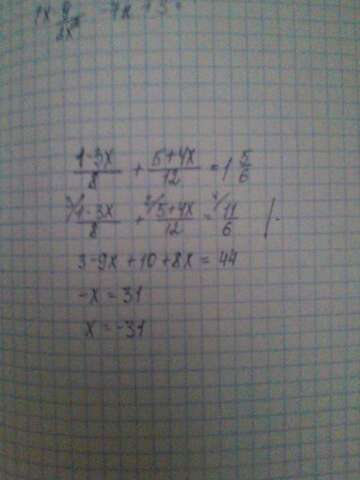 (1-3x)/8 + (5+4x)/12 = 1 5/6
3/ (1-3x)/8 + 2/ (5+4x)/12 = 4/ 11/6 /·
3-9x+10+8x=44
-x=31
x=-31